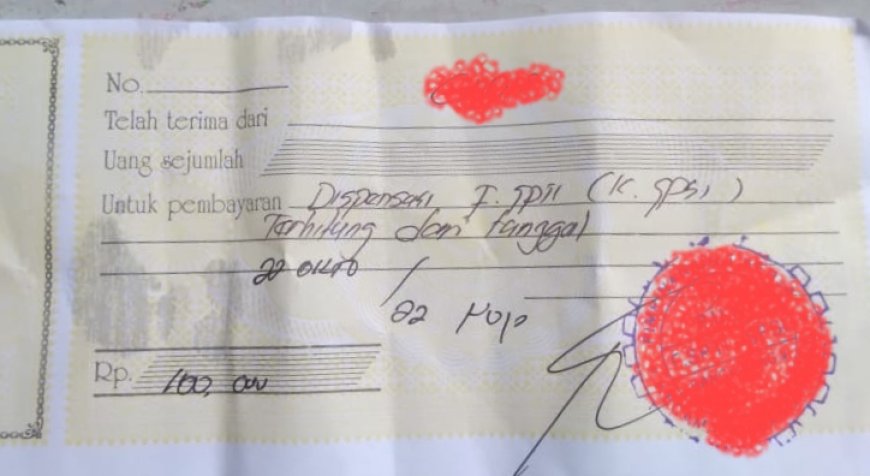 No.
Telah terima dari
Uang sejumlah
Untuk pembayaran Dispensasi F. SPSI (K. SPSI)
Terhitung dari tanggal
22 Okto / 22 Nope
Rp. 100,000